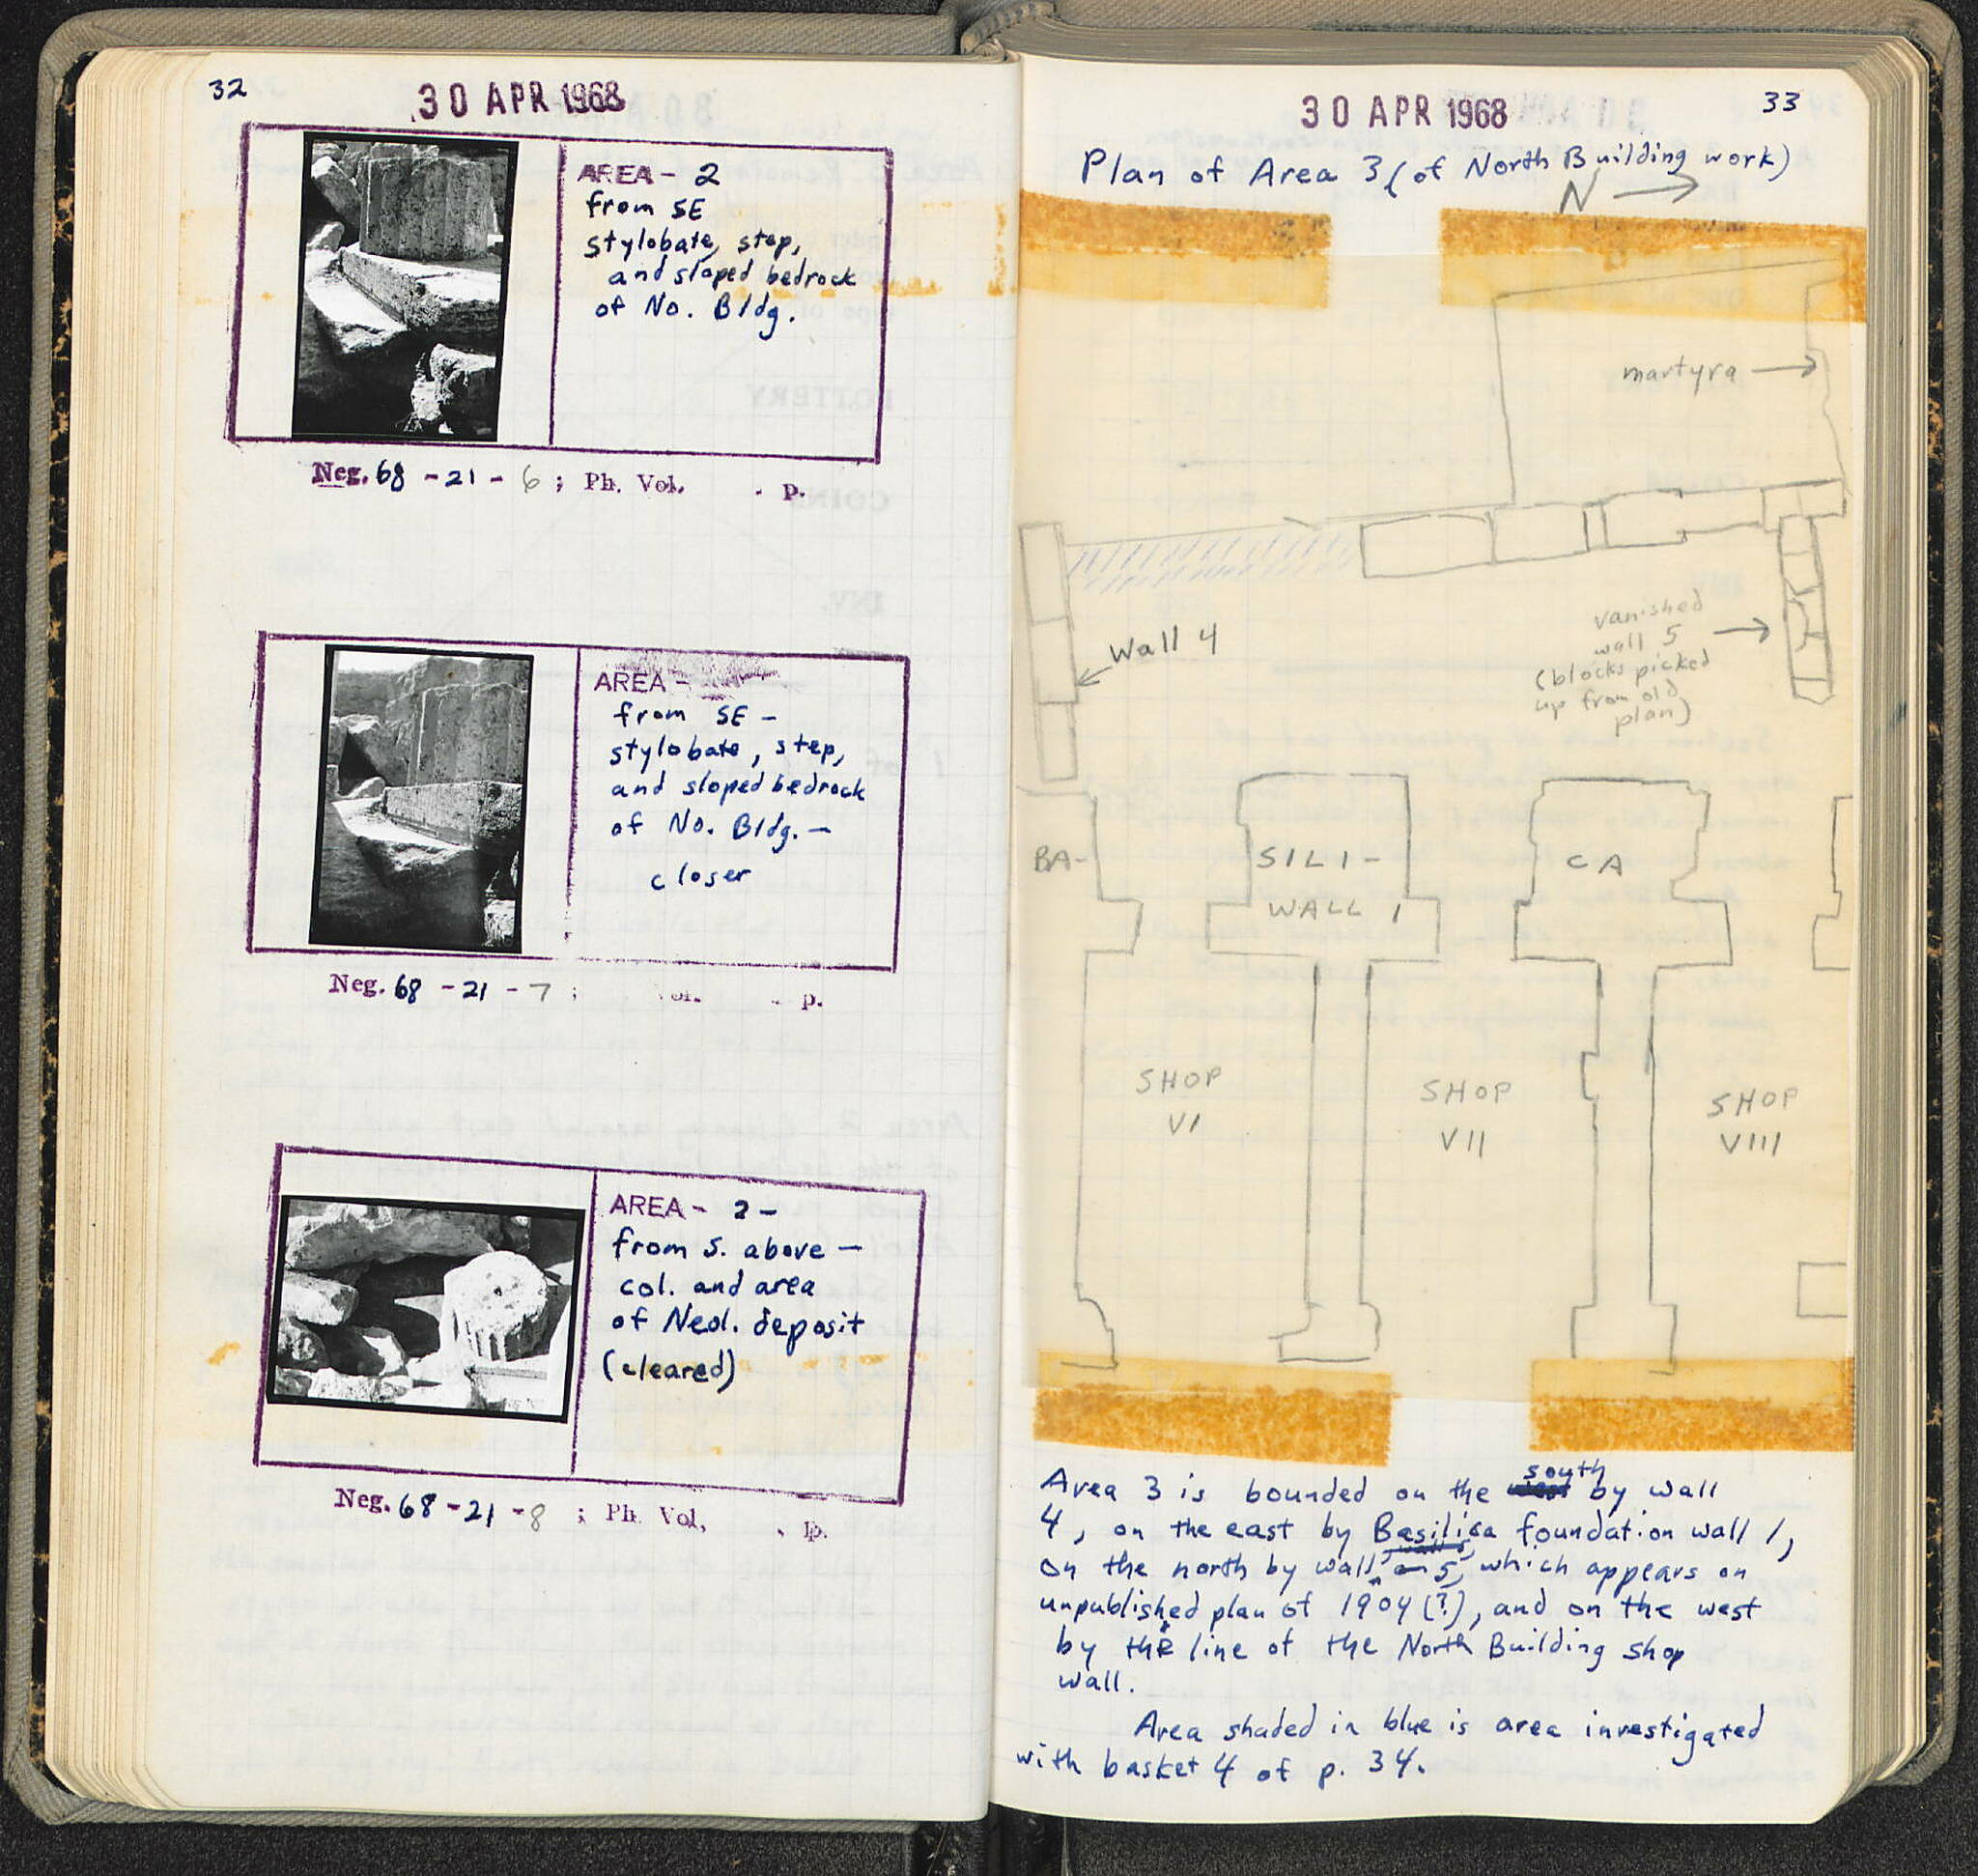 32
30 APR 1968
AREA - 2
from SE
stylobate, step,
and sloped bedrock
of No. Bldg.
Neg. 68 - 21 - 6 ; Ph. Vol. . p.
AREA -
from SE -
stylobate, step,
and sloped bedrock
of No. Bldg. -
closer
Neg. 68 - 21 - 7 ; Vol. - p.
AREA - 2 -
from S. above -
col. and area
of Neol. deposit
(cleared)
Neg. 68 - 21 - 8 ; Ph. Vol. . p.
30 APR 1968
33
Plan of Area 3 (of North Building work)
N →
martyra →
Wall 4
vanished
wall 5 →
(blocks picked
up from old
plan)
BA- SILI- CA
WALL 1
SHOP
VI
SHOP
VII
SHOP
VIII
Area 3 is bounded on the south by wall
4, on the east by Basilica foundation wall 1,
on the north by wall 5, which appears on
unpublished plan of 1904 (?), and on the west
by the line of the North Building shop
wall.
Area shaded in blue is area investigated
with basket 4 of p. 34.